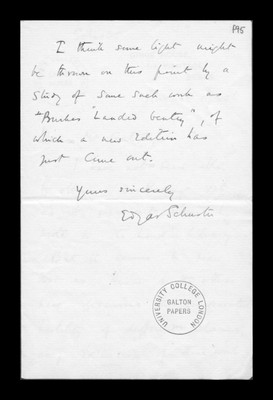 P95
I think some light might
be thrown on this point by a
study of some such work as
"Burkes "Landed Gentry", of
which a new Edition has
just come out.
Yours sincerely
Edgar Schuster
UNIVERSITY COLLEGE LONDON
GALTON
PAPERS